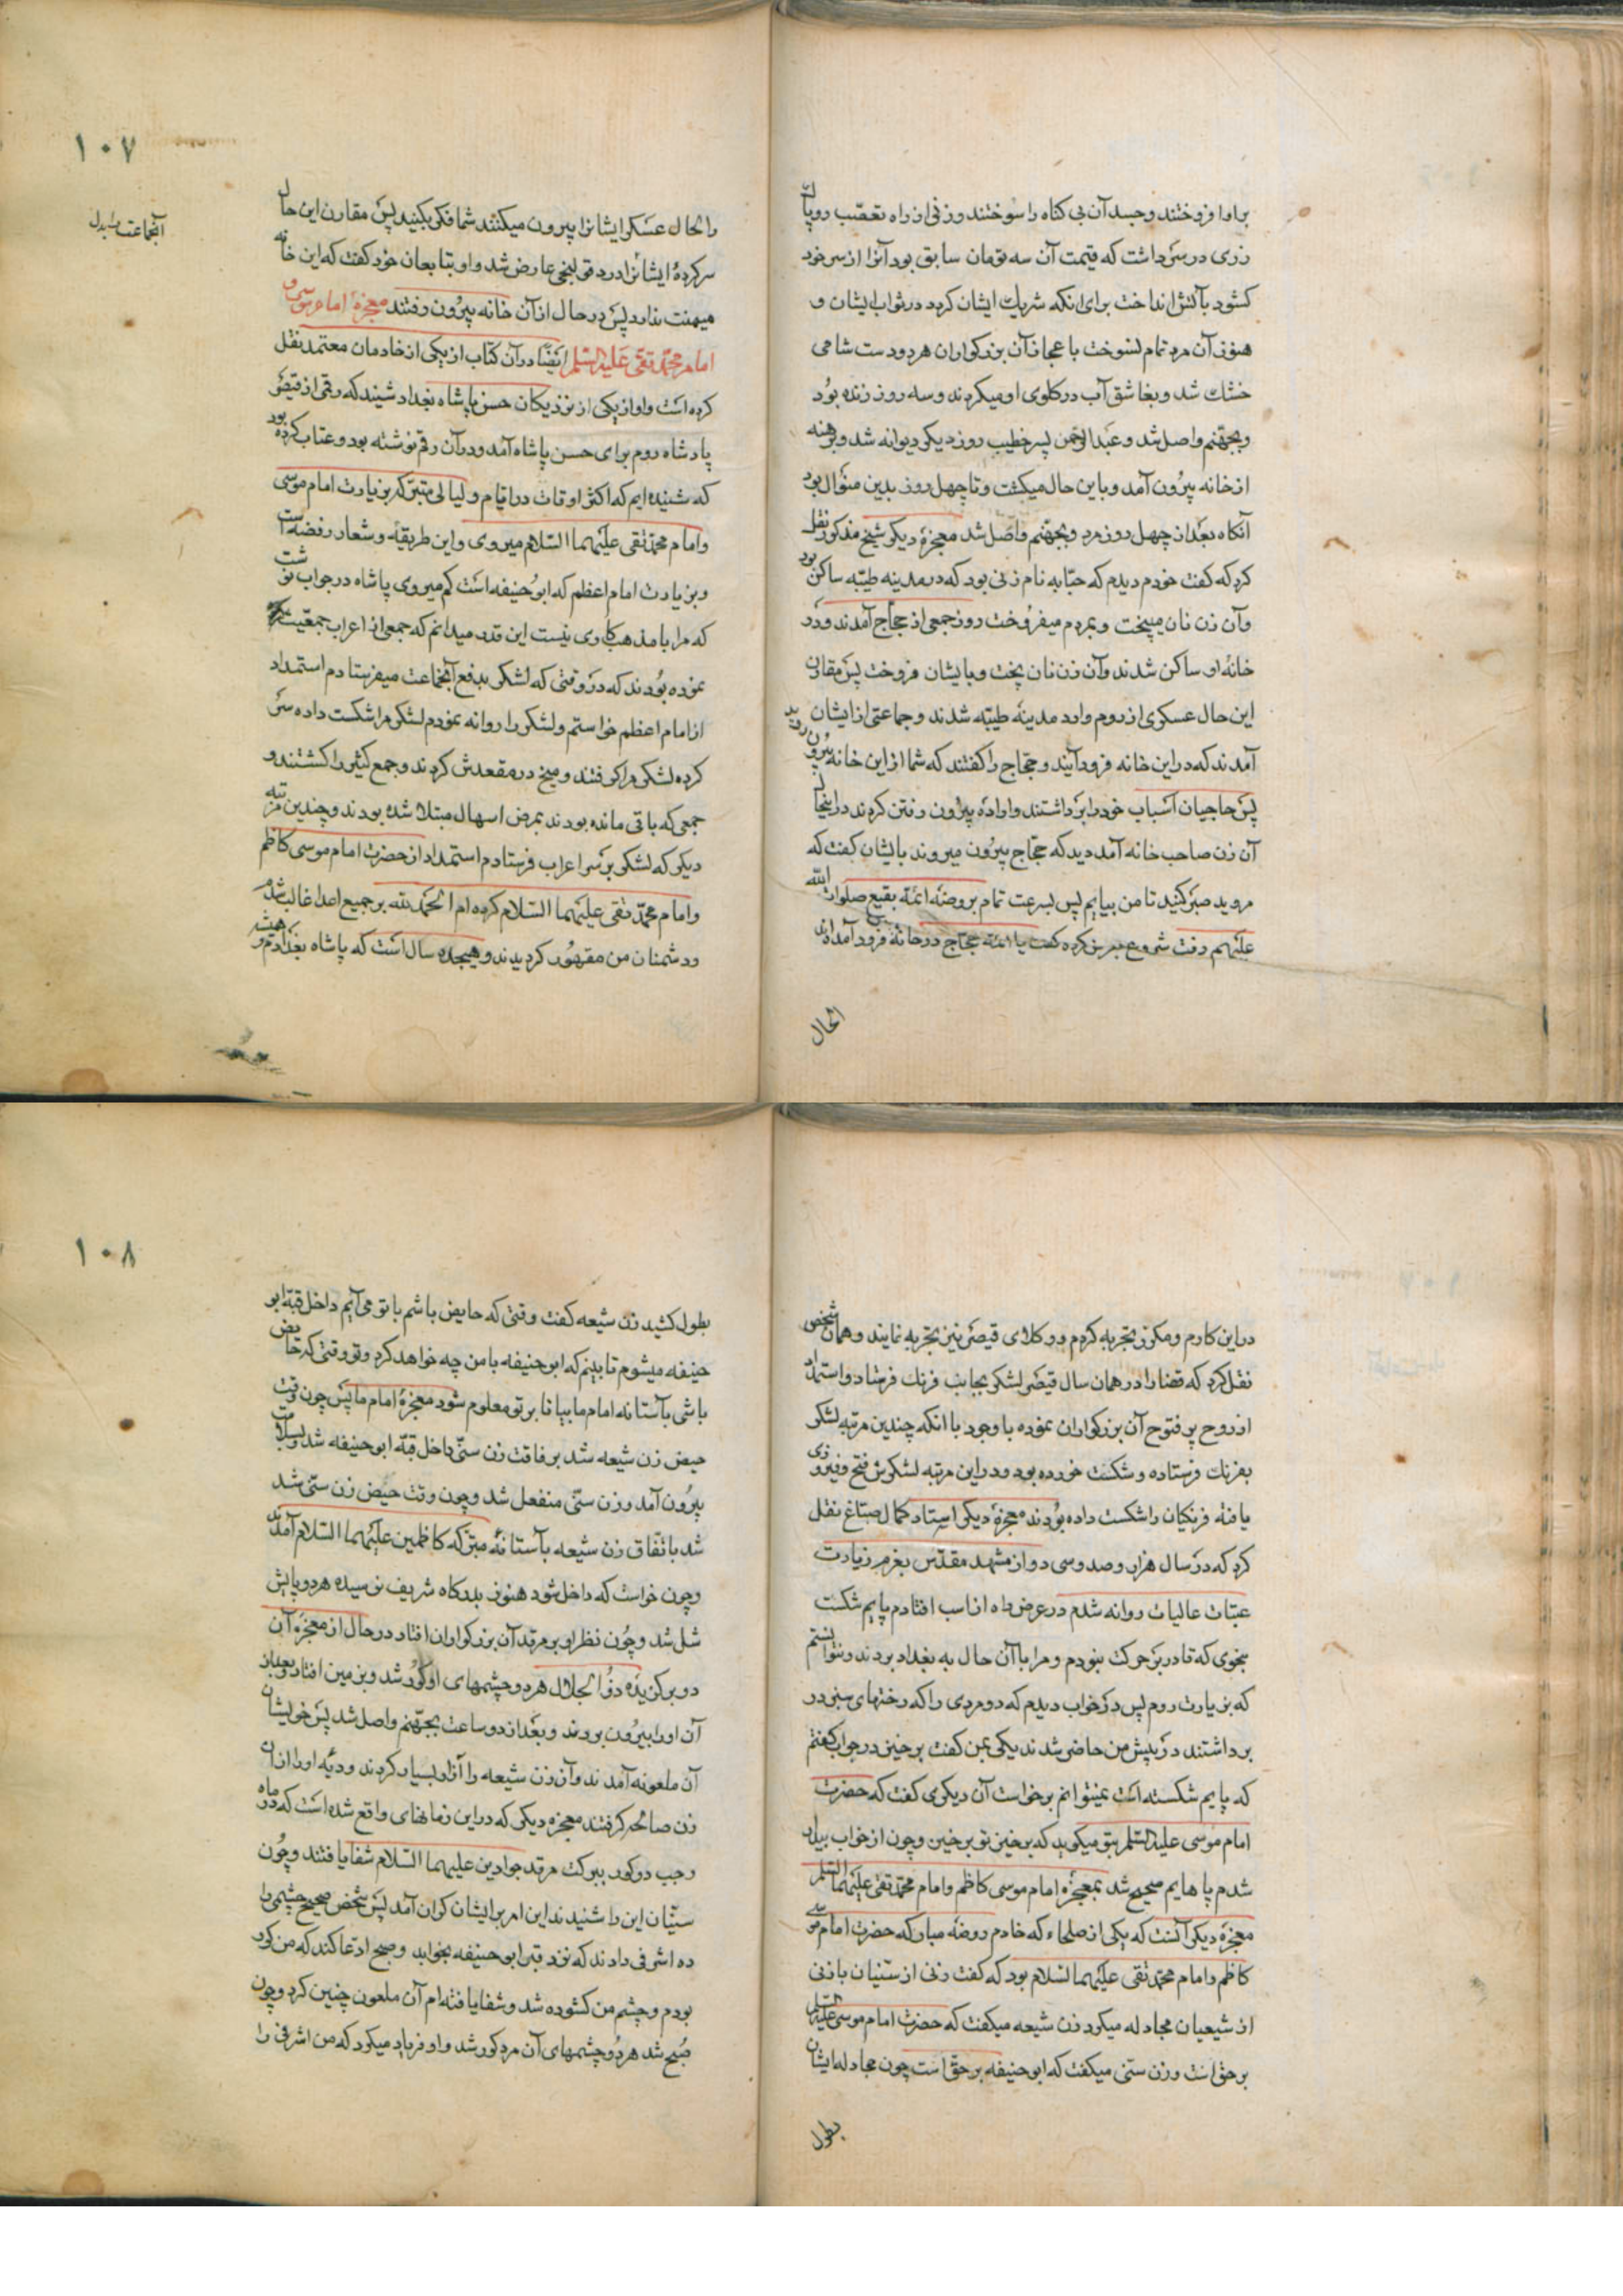 برا او افروختند و جسد آن بی کناه را سوختند و زنی از راه تعصّب روپاک
زری در سر داشت که قیمت آن سه تومان سابق بود آنرا از سر خود
کشود بآتش انداخت برای انکه شریک ایشان کردد در ثواب ایشان و
هنوز آن مرد تمام نسوخت باعجاز آن بزرکواران هر دو دست شامی
خشک شد و بقاشق آب در کلوی او میکردند و سه روز زنده بود
و بجهنّم واصل شد و عبدالرحمن پسر خطیب روز دیکر دیوانه شد و برهنه
از خانه بیرون آمد و با این حال میکشت و تا چهل روز بدین منوال بود
آنکاه بعد از چهل روز مرد و بجهنّم واصل شد معجزهٔ دیکر شیخ مذکور نقل
کرد که کفت خودم دیدم که حبّابه نام زنی بود که در مدینه طیّبه ساکن بود
و آن زن نان میپخت و بمردم میفروخت روز جمعی از حجّاج آمدند و در
خانهٔ او ساکن شدند و آن زن نان پخت و بایشان فروخت پس مقارن
این حال عسکری از روم وارد مدینه طیّبه شدند و جماعتی از ایشان
آمدند که در این خانه فرود آیند و حجّاج را کفتند که شما از این خانه بیرون روید
پس حاجیان اسباب خود را برداشتند و اراده بیرون رفتن کردند در اینحال
آن زن صاحب خانه آمد دید که حجّاج بیرون میروند بایشان کفت که
مروید صبر کنید تا من بیایم پس بسرعت تمام بروضه ائمّه بقیع صلوات الله
علیهم رفت شروع بعرض کرده کفت یا ائمّه حجّاج در خانهٔ فرود آمداند
الحال
۱۰۷
والحال عسکر ایشانرا بیرون میکنند شما فکر بکنید پس مقارن این حال
سرکردهٔ ایشانرا درد قولنجی عارض شد و او بتابعان خود کفت که این خانه
میمنت ندارد پس در حال از آن خانه بیرون رفتند معجزهٔ امام موسی و
امام محمّد تقی علیه السّلم ایضًا در آن کتاب از یکی از خادمان معتمد نقل
کرده است و او از یکی از نزدیکان حسن پاشاه بغداد شنیند که رقمی از قیصر
پادشاه روم برای حسن پاشاه آمد و در آن رقم نوشته بود و عتاب کرده بود
که شنیده ایم که اکثر اوقات در ایّام و لیالی متبرّکه بزیارت امام موسی
و امام محمّد تقی علیهما السّلام میروی و این طریقهٔ و شعار رفضه است
و بزیارت امام اعظم که ابو حنیفه است کم میروی پاشاه در جواب نوشت
که مرا با مذهب کاری نیست این قدر میدانم که جمعی از اعراب جمعیّت
نموده بودند که در وقتی که لشکر بدفع آنجماعت میفرستادم استمداد
آنجماعت
از امام اعظم خواستم و لشکر را روانه نمودم لشکر مرا شکست داده سر
کرده لشکر مرا کرفتند و میخ در مقعدش کردند و جمع کثیر را کشتند و
جمعی که باقی مانده بودند بمرض اسهال مبتلا شده بودند و چندین مرتبه
دیکر که لشکر بر سر اعراب فرستادم استمداد از حضرت امام موسی کاظم
و امام محمّد تقی علیهما السّلام کرده ام الحمد لله بر جمیع اعدا غالب شدم
و دشمنان من مقهور کردیدند و هیجده سال است که پاشاه بغدادم و همیشه
در این کارم و مکرّر تجربه کردم و وکلای قیصر نیز تجربه نمایند و همان شخص
نقل کرد که قضارا در همان سال قیصر لشکر بجانب فرنک فرستاد و استمداد
از روح پر فتوح آن بزرکواران نموده با وجود با انکه چندین مرتبه لشکر
بفرنک فرستاده و شکست خورده بود و در این مرتبه لشکرش فتح و فیروزی
یافته فرنکیان را شکست داده بودند معجزهٔ دیکر استاد کمال صبّاغ نقل
کرد که در سال هزار و صد و سی دو از مشهد مقدّس بعزم زیارت
عتبات عالیات روانه شدم در عرض راه از اسب افتادم پایم شکست
بنحوی که قادر بر حرکت نبودم و مرا با آن حال به بغداد بردند و نتوانستم
که بزیارت روم پس در خواب دیدم که دو مردی را که رختهای سبز در
برداشتند در پیش من حاضر شدند یکی بمن کفت برخیز در جواب کفتم
که پایم شکسته است نمیتوانم برخواست آن دیکری کفت که حضرت
امام موسی علیه السّلم بتو میکوید که برخیز تو برخیز و چون از خواب بیدار
شدم پاهایم صحیح شد بمعجزهٔ امام موسی کاظم و امام محمّد تقی علیهما السّلم
معجزهٔ دیکر آنست که یکی از صلحاء که خادم روضه مبارکه حضرت امام موسی
کاظم و امام محمّد تقی علیهما السّلام بود که کفت زنی از سنّیان با زنی
از شیعیان مجادله میکرد زن شیعه میکفت که حضرت امام موسی علیه السّلم
بر حق است و زن سنّی میکفت که ابو حنیفه بر حق است چون مجادله ایشان
بطول
۱۰۸
بطول کشید زن شیعه کفت وقتی که حایض باشم با تو می آیم داخل قبّه ابو
حنیفه میشوم تا ببینم که ابو حنیفه با من چه خواهد کرد و تو وقتی که حایض
باشی بآستانه امام ما بیا تا بر تو معلوم شود معجزهٔ امام ما پس چون وقت
حیض زن شیعه شد برفاقت زن سنّی داخل قبّه ابو حنیفه شد و بسلامت
بیرون آمد و زن سنّی منفعل شد و چون وقت حیض زن سنّی شد
شد باتّفاق زن شیعه بآستانهٔ متبرّکه کاظمین علیهما السّلام آمدند
و چون خواست که داخل شود هنوز بدرکاه شریف نرسیده هر دو پایش
شل شد و چون نظر او بر مرقد آن بزرکواران افتاد در حال از معجزهٔ آن
دو برکزیدهٔ ذو الجلال هر دو چشمهای او کور شد و بزمین افتاد و بعد از
آن او را بیرون بردند و بعد از دو ساعت بجهنّم واصل شد پس خویشان
آن ملعونه آمدند و آن زن شیعه را آزار بسیار کردند و دیّه او را از آن
زن صالحه کرفتند معجزه دیکر که در این زمانهای واقع شده است که در ماه
رجب دو کور ببرکت مرقد جوادین علیهما السّلام شفا یافتند و چون
سنّیان این را شنیدند این امر بر ایشان کران آمد پس شخص صحیح چشمی را
ده اشرفی دادند که نزد قبر ابو حنیفه بخوابد و صبح ادّعا کند که من کور
بودم و چشم من کشوده شد و شفا یافته ام آن ملعون چنین کرد و چون
صبح شد هر دو چشمهای آن مرد کور شد و او فریاد میکرد که من اشرفی را